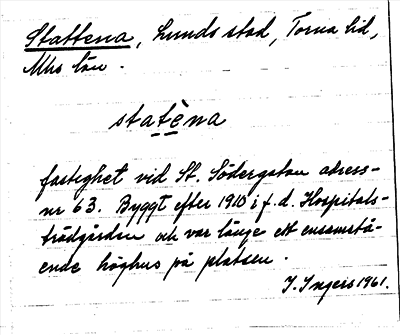 Stattena, Lunds stad, Torna hd,
Mhs län.
statèna
fastighet vid St. Södergatan adress-
nr 63. Byggt efter 1910 i f.d. Hospitals-
trädgården och var länge ett ensamstå-
ende höghus på platsen.
I. Ingers 1961.